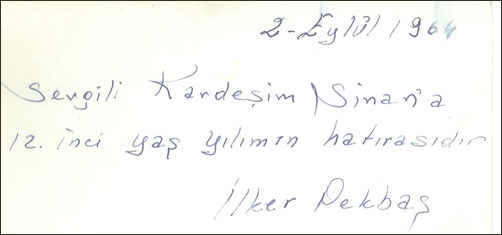 2-Eylûl 1964
Sevgili Kardeşim Sinan'a
12. inci yaş yılımın hatırasıdır
İlker Pekbaş